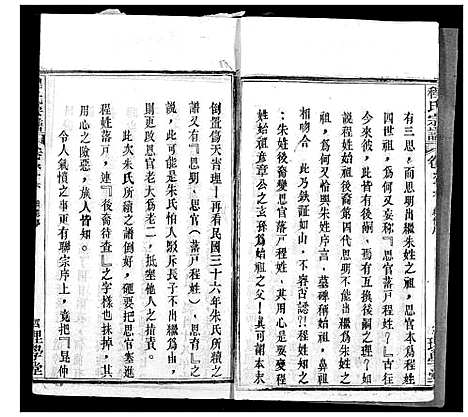 程氏宗譜
有三思,而思明出繼朱姓之
四世祖,爲何又妄稱『思官』?古往
今來彼此皆有後嗣,尚有互換後嗣之理?如
說程姓始祖後裔第四代思明,不能出繼爲朱姓
祖,爲何又恰與朱姓序言,墓碑稱始祖
相吻合,此乃鉄証如山,不容否認?!
:朱姓後裔變思官落戸程姓,其用心是要變程
姓始祖彥章公之玄孫爲始祖,爲何謂本末
姓始祖之父!其可笑
倒置傷天害理—再看民國三十六年朱氏所續之
譜又有『思明、思官(落戸程姓)、思育』之
說,此可能是朱氏怕人駁斥長子不出繼爲由,
則更改思官老大爲老二,抵塞他人之指責。
此次朱氏所續之譜倒好,硬要把思官塞進
程姓,連『後裔待查』四字也抹掉,其
用心之險惡,族人皆知。
令人氣憤之事更有聯宗序上,竟把『昆仲
理學堂